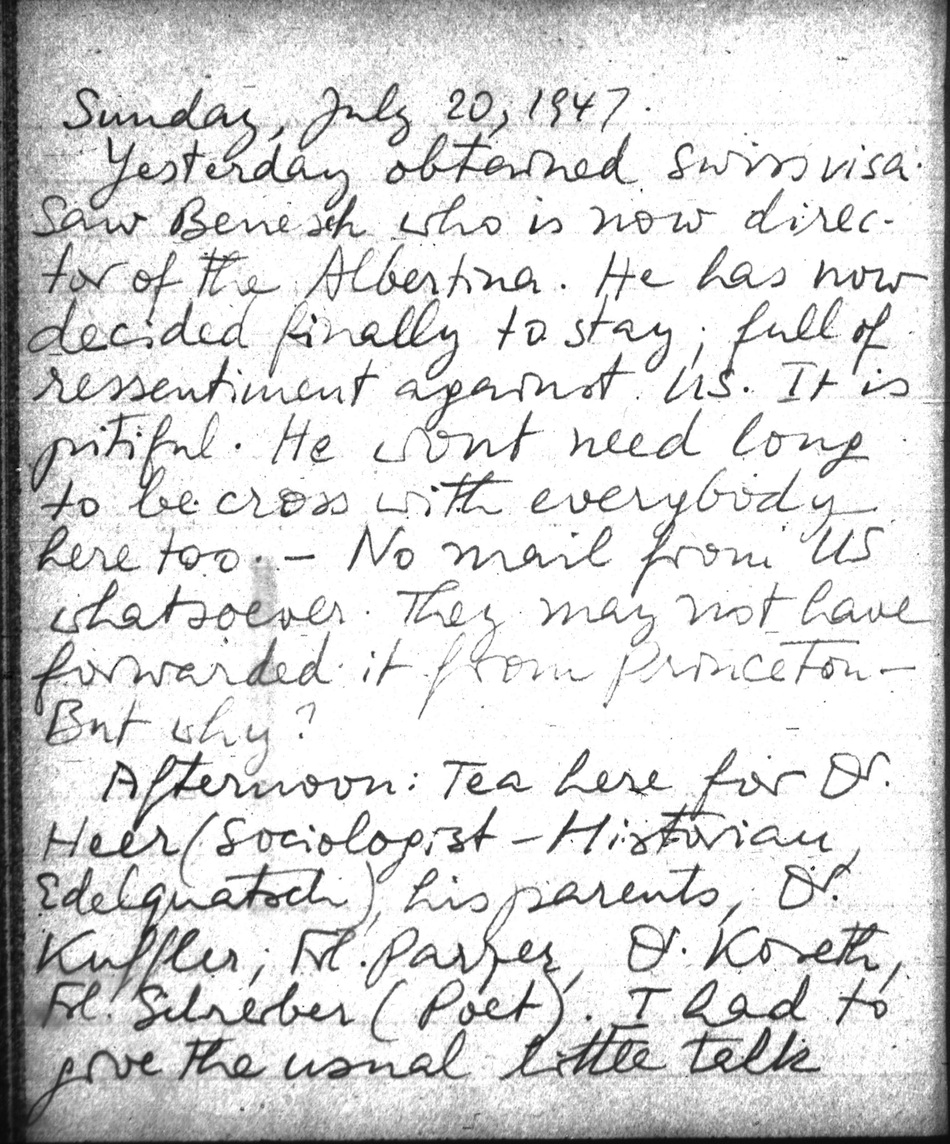 Sunday, July 20, 1947.
Yesterday obtained Swiss visa.
Saw Benesch who is now direc-
tor of the Albertina. He has now
decided finally to stay; full of
ressentiment against US. It is
pitiful. He wont need long
to be cross with everybody
here too. – No mail from US
whatsoever. They may not have
forwarded it from Princeton –
But why?
Afternoon: Tea here for Dr.
Heer (Sociologist – Historian,
Edelquatsch), his parents, Dr.
Kuffler, Frl. Parzer, Dr. Koseth,
Frl. Schreiber (Poet). I had to
give the usual little talk